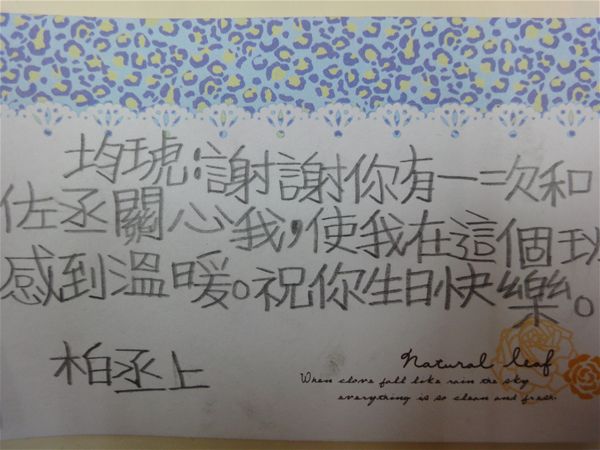 均琥:謝謝你有一次和
佐丞關心我,使我在這個班
感到溫暖。祝你生日快樂。
柏丞上
Natural leaf
When clove fall like rain the sky
everything is so clean and fresh.